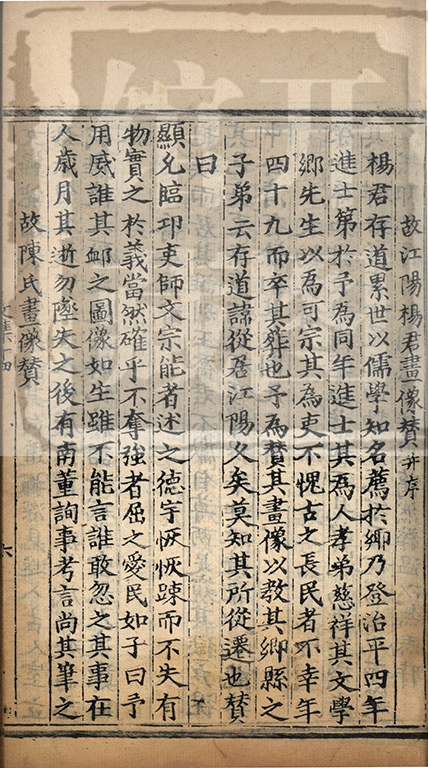 故江陽楊君畫像賛并序
楊君存道累世以儒學知名薦於鄉乃登治平四年
進士第於予為同年進士其為人孝弟慈祥其文學
鄉先生以為可宗其為吏不愧古之長民者不幸年
四十九而卒其葬也予為賛其畫像以教其鄉縣之
子弟云存道諱從居江陽久矣莫知其所從遷也賛
曰
顯允臨卭吏師文宗能者述之德宇恢恢踈而不失有
物實之於義當然確乎不奪強者屈之愛民如子曰予
用威誰其衂之圖像如生雖不能言誰敢忽之其事在
人歲月其逝勿墜失之後有南董詢事考言尚其筆之
故陳氏畫像賛
文集十四
六